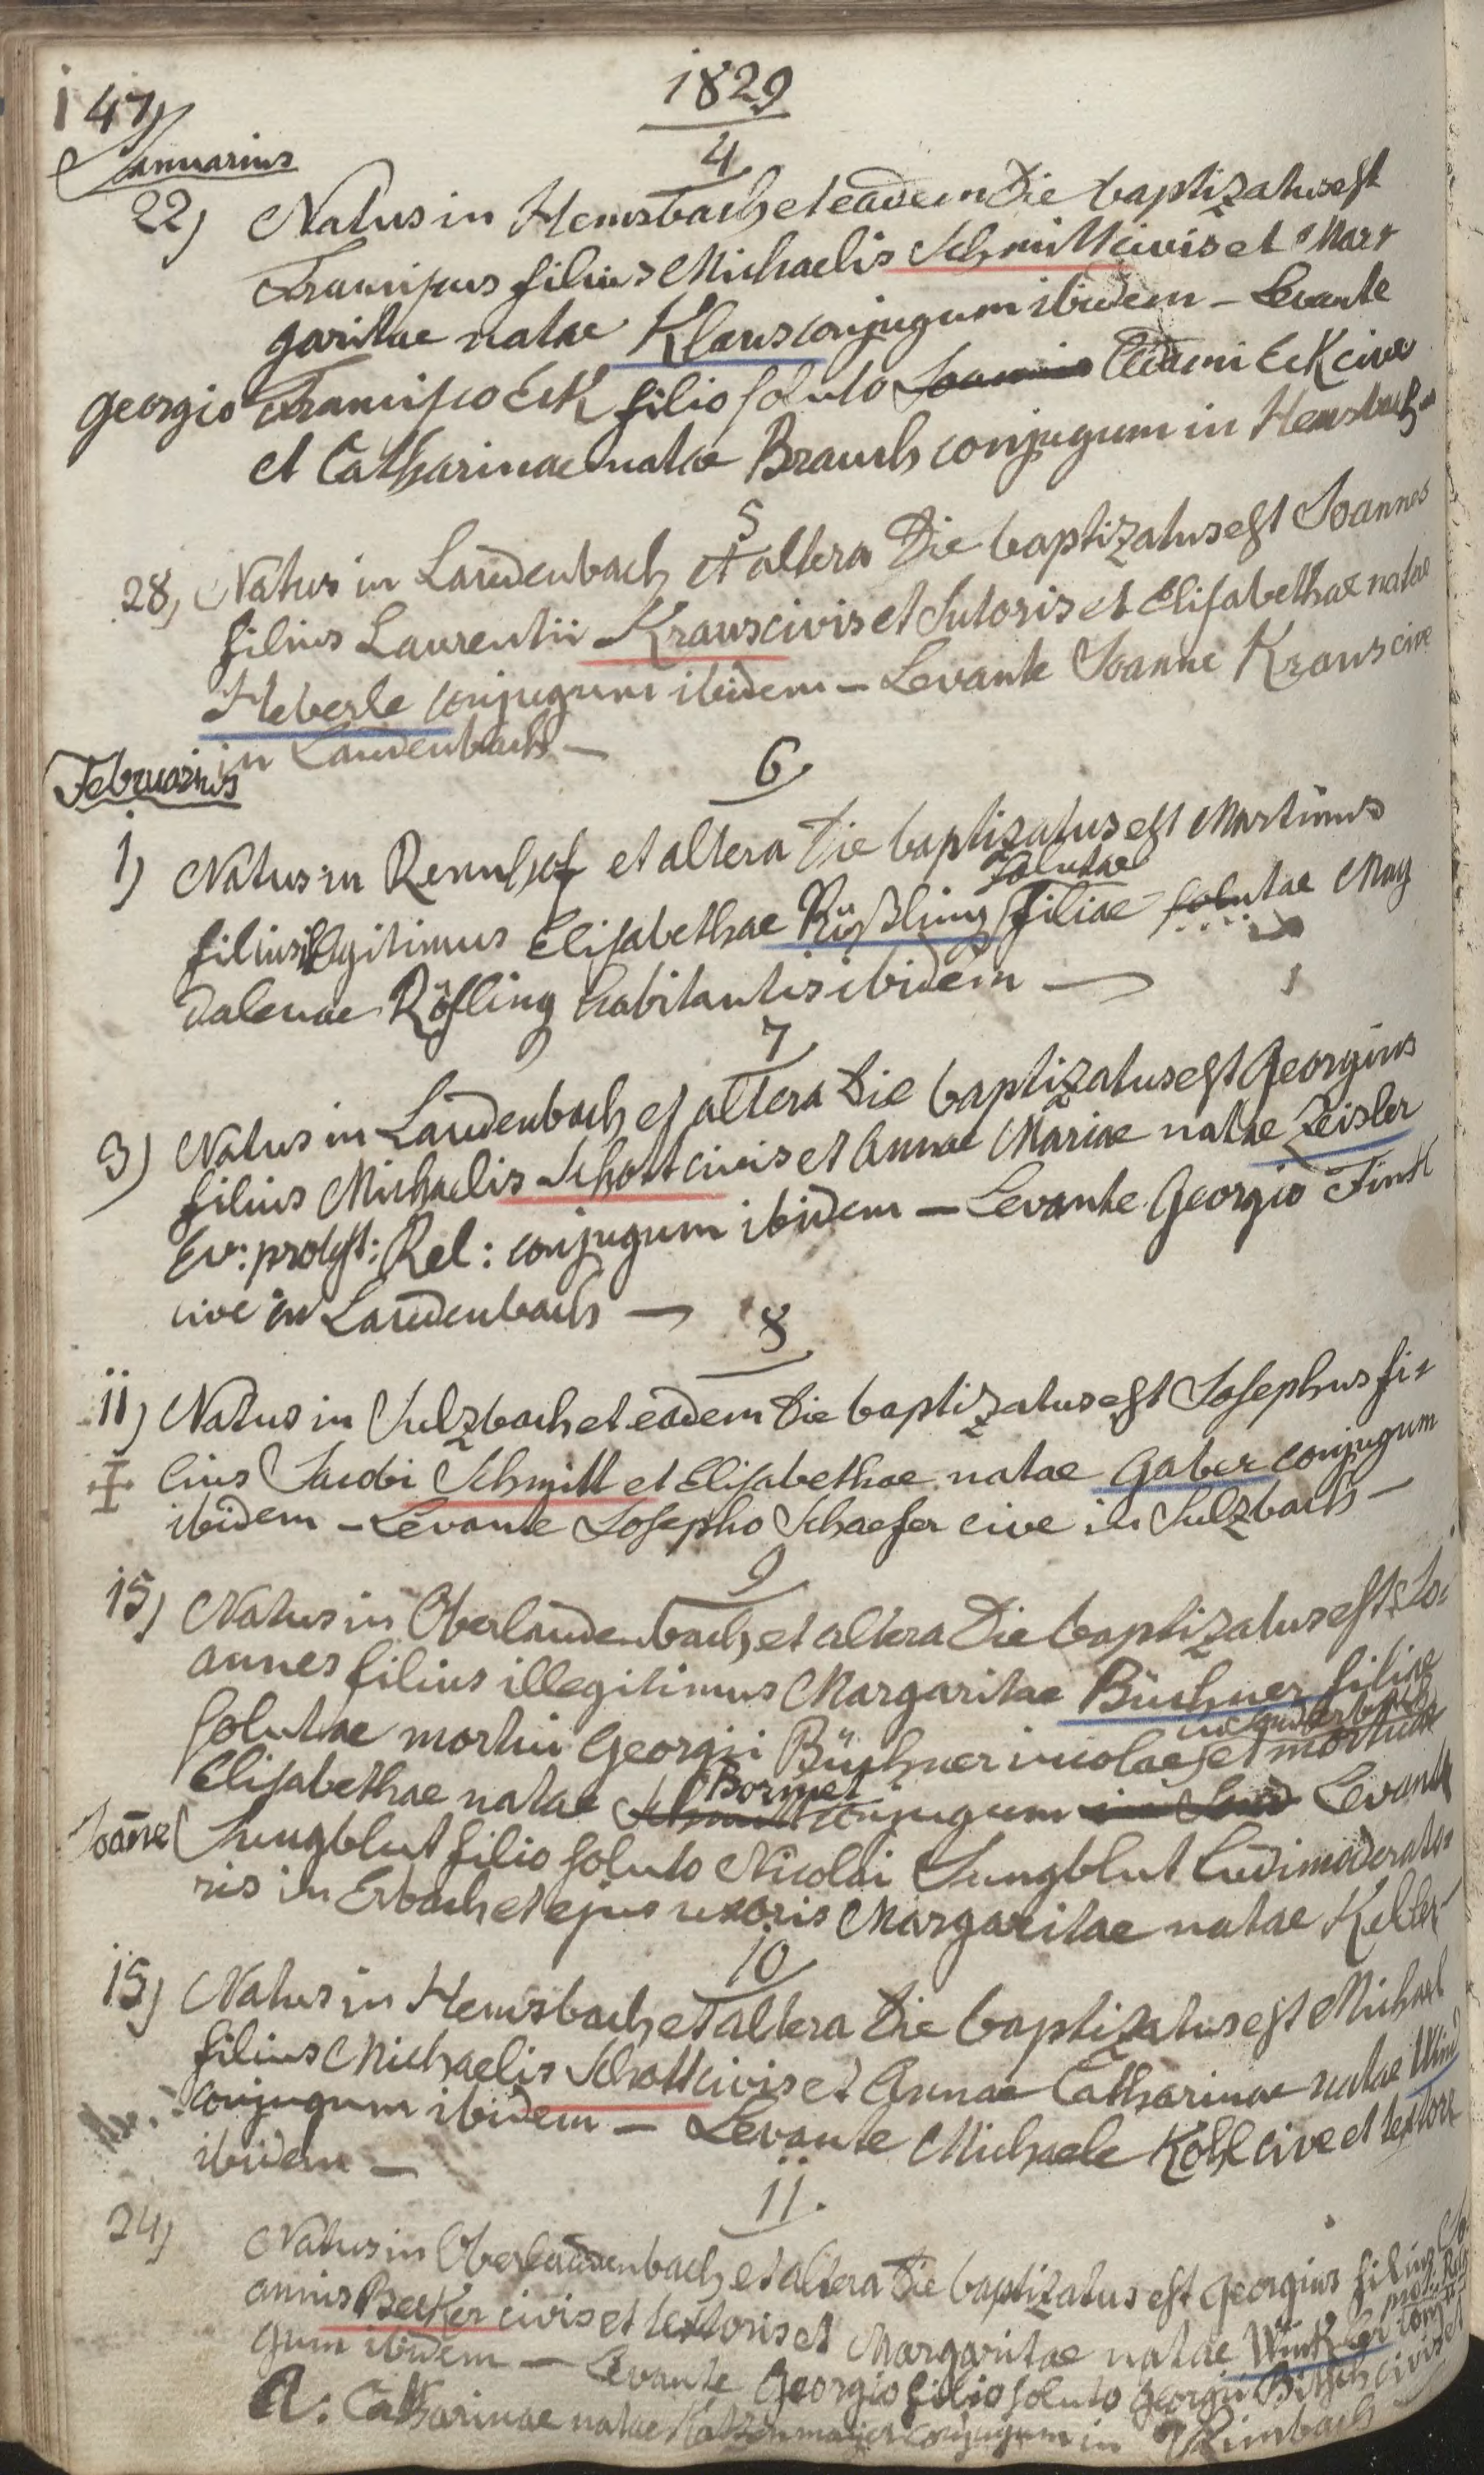 147)
1829
Januarius
4
22) Natus in Hemsbach et eadem Die baptizatus est
Franciscus filius Michaelis Schmitt civis et Mar,
garitae natae Klaus conjugum ibidem – Levante
Georgio Francisco Eck filio soluto Joannis Adami Eck civis
et Catharinae natae Brauch conjugum in Hemsbach
5
28) Natus in Laudenbach et altera Die baptizatus est Joannes
filius Laurentii Kraus civis et Sutoris et Elisabethae natae
Heberle conjugum ibidem – Levante Joanne Kraus cive
in Laudenbach –
Februarius
6
1) Natus in Rennhof et altera Die baptizatus est Martinus
solutae
filius illegitimus Elisabethae Rößling filiae solutae Mag
dalenae Rösling habitantis ibidem —
7
3) Natus in Laudenbach et altera Die baptizatus est Georgius
filius Michaelis Schott civis et Annae Mariae natae Zeisler
Ev: protest: Rel: conjugum ibidem – Levante Georgio Fink
cive in Laudenbach —
8
11) Natus in Sulzbach et eadem Die baptizatus est Josephus fi-
lius Jacobi Schmitt et Elisabethae natae Gaber conjugum
ibidem – Levante Josepho Schaefer cive in Sulzbach –
9
15) Natus in Oberlaudenbach et altera Die baptizatus est Jo-
annes filius illegitimus Margaritae Büchner filiae
solutae mortui Georgii Büchner incolae et mortuae
Elisabethae natae Bormet conjugum Levante
Joane Jungblut filio soluto Nicolai Jungblut Ludimoderato-
ris in Erbach et ejus uxoris Margaritae natae Keller
10
15) Natus in Hemsbach et altera Die baptizatus est Michael
filius Michaelis Schott civis et Annae Catharinae natae
conjugum ibidem – Levante Michaele Kohl cive et textore
ibidem –
11.
24) Natus in Oberlaudenbach et altera Die baptizatus est Georgius filius Jo
annis Becker civis et textoris et Margaritae natae Winkler conju
gum ibidem – Levante Georgio filio soluto Georgii civis et
A: Catharinae natae Katzenmayer conjugum in Rimbach